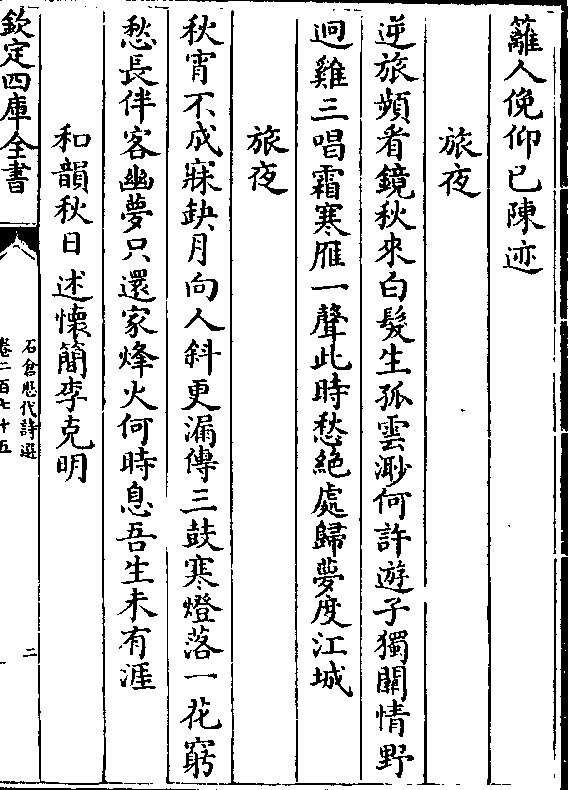 籬人俛仰已陳迹
旅夜
逆旅頻看鏡秋來白髮生孤雲渺何許遊子獨關情野
迥雞三唱霜寒雁一聲此時愁絕處歸夢度江城
旅夜
秋宵不成寐缺月向人斜更漏傳三鼓寒燈落一花窮
愁長伴客幽夢只還家烽火何時息吾生未有涯
和韻秋日述懷簡李克明
欽定四庫全書
石倉歷代詩選
卷二百七十五
二